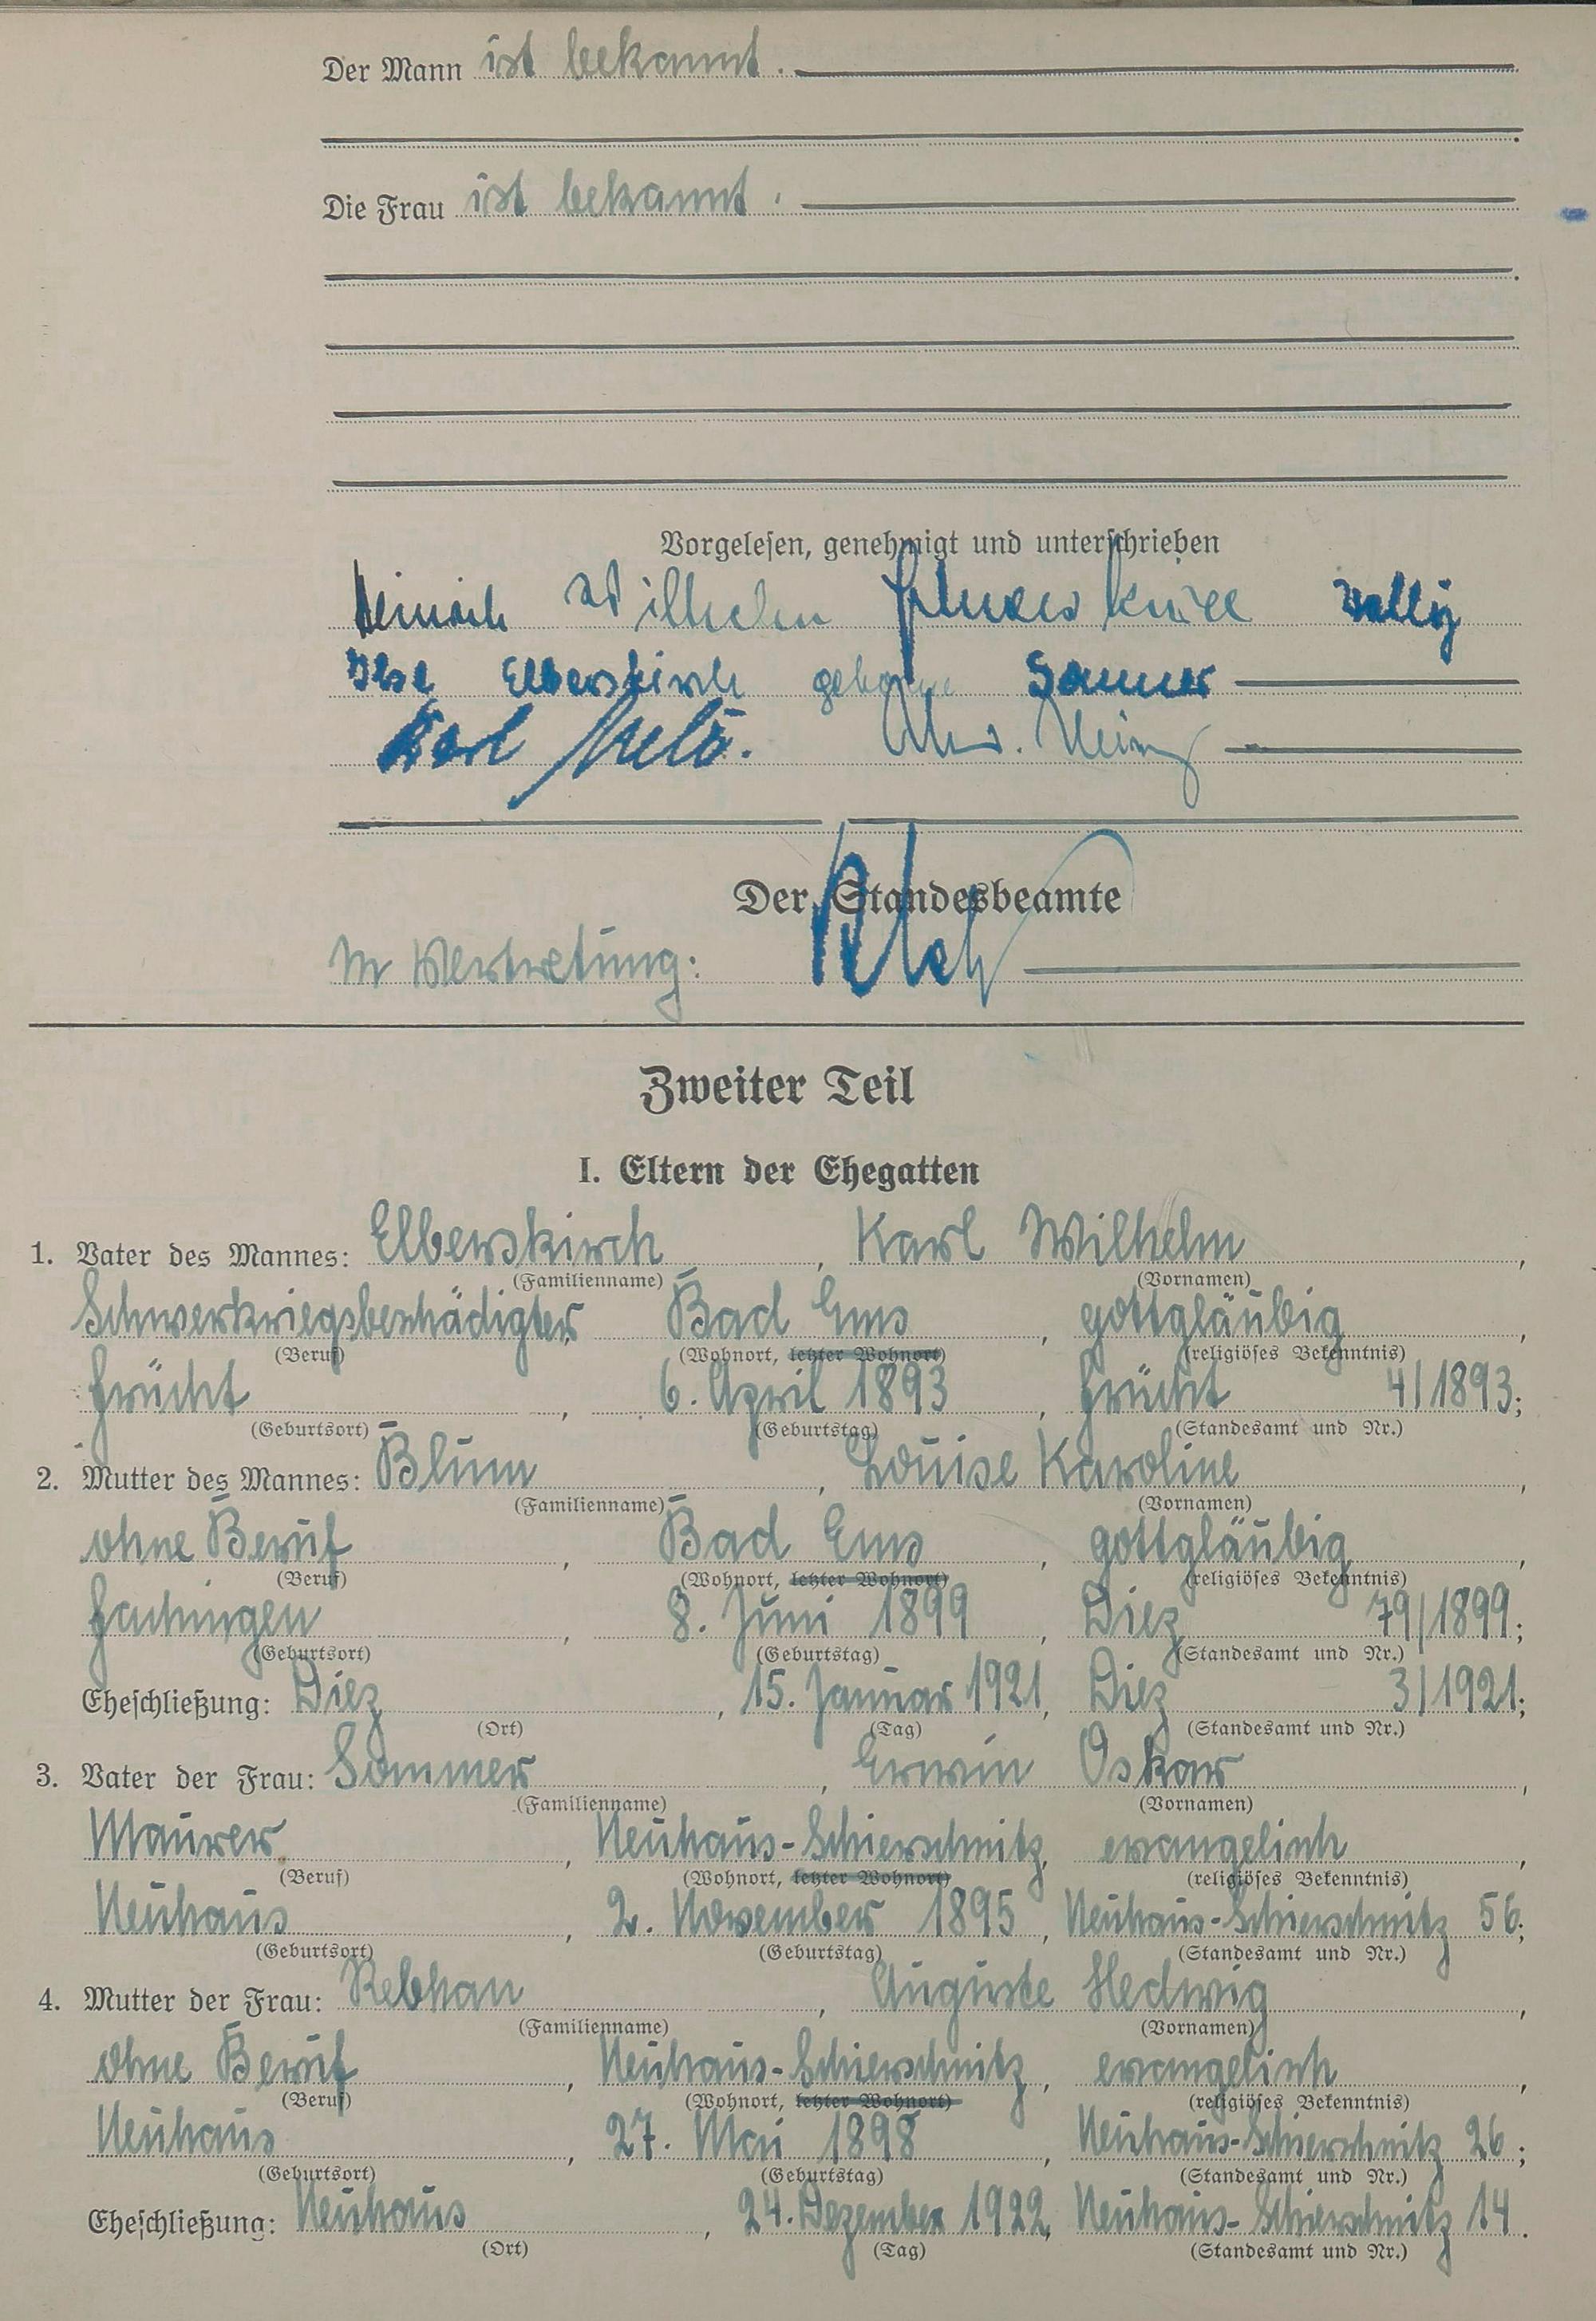 Der Mann ist bekannt.
Die Frau ist bekannt.
Vorgelesen, genehmigt und unterschrieben
Heinrich Wilhelm Elberskirch Wally
Ilse Elberskirch geborene Sommer
Karl
Der Standesbeamte
In Vertretung:
Zweiter Teil
I. Eltern der Ehegatten
1. Vater des Mannes: Elberskirch, Karl Wilhelm,
(Familienname) (Vornamen)
Schwerkriegsbeschädigter Bad Ems, gottgläubig,
(Beruf) (Wohnort, letzter Wohnort) (religiöses Bekenntnis)
Frücht, 6. April 1893, Frücht 4/1893;
(Geburtsort) (Geburtstag) (Standesamt und Nr.)
2. Mutter des Mannes: Blum, Louise Karoline,
(Familienname) (Vornamen)
ohne Beruf, Bad Ems, gottgläubig,
(Beruf) (Wohnort, letzter Wohnort) (religiöses Bekenntnis)
Fachingen, 8. Juni 1899, Diez 79/1899;
(Geburtsort) (Geburtstag) (Standesamt und Nr.)
Eheschließung: Diez, 15. Januar 1921, Diez 3/1921;
(Ort) (Tag) (Standesamt und Nr.)
3. Vater der Frau: Sommer, Erwin Oskar,
(Familienname) (Vornamen)
Maurer, Neuhaus-Schierschnitz, evangelisch,
(Beruf) (Wohnort, letzter Wohnort) (religiöses Bekenntnis)
Neuhaus, 2. November 1895, Neuhaus-Schierschnitz 56;
(Geburtsort) (Geburtstag) (Standesamt und Nr.)
4. Mutter der Frau: Rebhan, Auguste Hedwig,
(Familienname) (Vornamen)
ohne Beruf, Neuhaus-Schierschnitz, evangelisch,
(Beruf) (Wohnort, letzter Wohnort) (religiöses Bekenntnis)
Neuhaus, 27. Mai 1898, Neuhaus-Schierschnitz 26;
(Geburtsort) (Geburtstag) (Standesamt und Nr.)
Eheschließung: Neuhaus, 24. Dezember 1922, Neuhaus-Schierschnitz 14.
(Ort) (Tag) (Standesamt und Nr.)